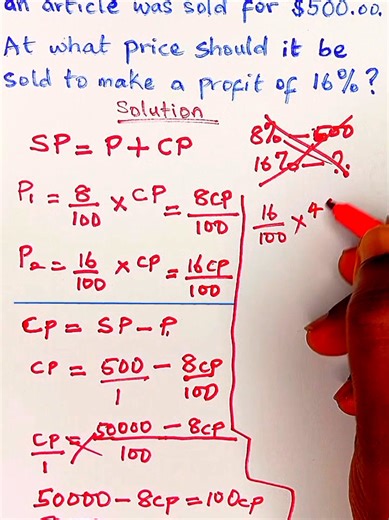 an article was sold for $500.00.
At what price should it be
sold to make a profit of 16%?
Solution
SP = P + CP
P1 = 8/100 × CP = 8CP/100
P2 = 16/100 × CP = 16CP/100
CP = SP - P1
CP = 500/1 - 8CP/100
CP/1 = 50000 - 8CP/100
50000 - 8CP = 100CP
8% — 500
16% — ?
16/100 × 4